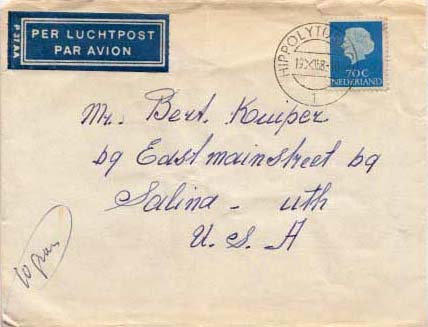 P 31 AA
PER LUCHTPOST
PAR AVION
HIPPOLYTU
70 C
NEDERLAND
1
Mr. Bert Kuiper
69 East mainstreet 69
Salina - uth
U. S. A
10 gram